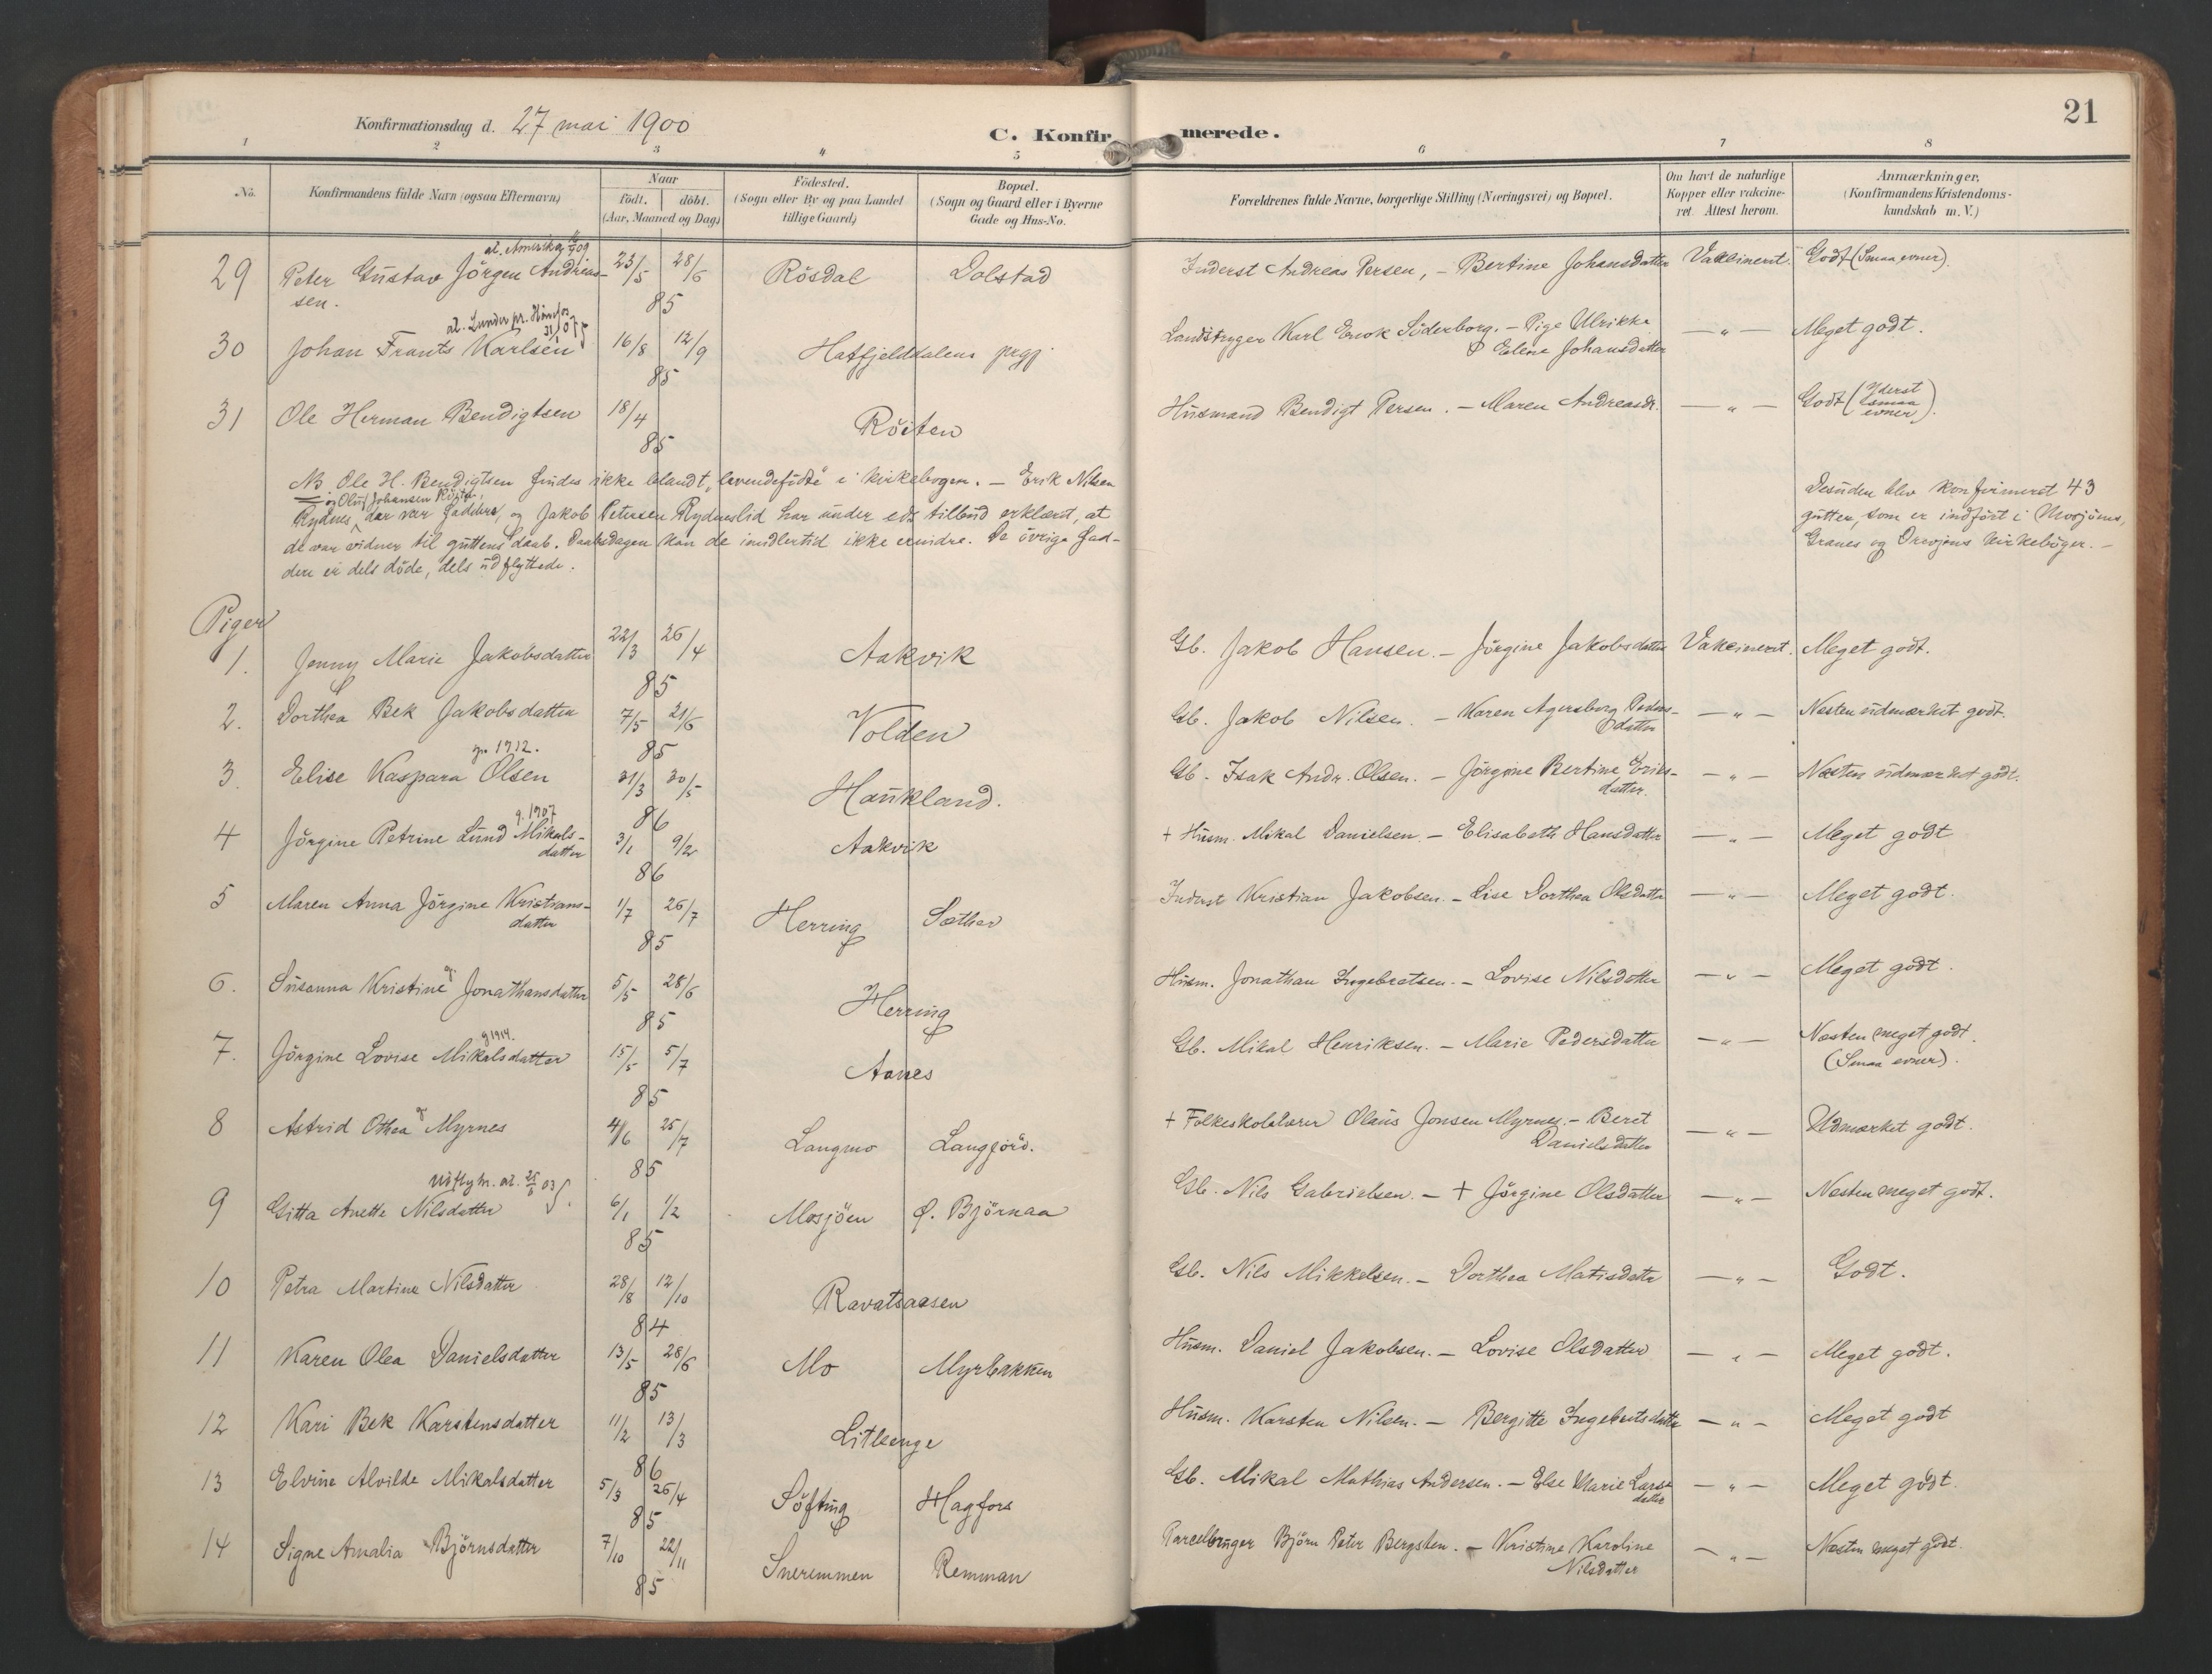 21
Konfirmationsdag d. 27 mai 1900
C. Konfirmerede.
1 2 3 4 5 6 7 8
No.
Konfirmandens fulde Navn (ogsaa Efternavn)
Naar
födt. döbt.
(Aar, Maaned og Dag)
Födested.
(Sogn eller By og paa Landet
tillige Gaard)
Bopæl.
(Sogn og Gaard eller i Byerne
Gade og Hus-No.
Forældrenes fulde Navne, borgerlige Stilling (Næringsvei) og Bopæl.
Om havt de naturlige
Kopper eller vakcine-
ret. Attest herom.
Anmærkninger,
(Konfirmandens Kristendoms-
kundskab m. V.)
at. Amerika 09
29 Peter Gustav Jörgen Andreas- 23/5 28/6 Rösdal Dolstad Inderst Andreas Persen, - Bertine Johansdatter Vakcineret. Godt (Smaa evner).
sen. 85
at. Lunder pr. Hönefos 07
30 Johan Frants Karlsen 16/8 12/9 Hatfjelddalens prgj. Landstryger Karl Enok Söderborg. - Pige Ulrikke — „ — Meget godt.
Elene Johansdatter
85
31 Ole Herman Bendigtsen 18/4 Röiten Husmand Bendigt Persen. - Maren Andreasd. — „ — Godt (Yderst smaa evner).
85
NB Ole H. Bendigtsen findes ikke blandt „levendefödte" i kirkebogen. - Erik Nilsen
og Oluf Johansen
Rydnes, der var faddere, og Jakob Petersen Rydneslid har under eds tilbud erklæret, at
de var vidner til guttens daab. Daabsdagen kan de imidlertid ikke erindre. De övrige fad-
dere er dels döde, dels udflyttede.
Desuden blev konfirmeret 43
gutter, som er indfört i Mosjöens,
Granes og Drevjens kirkeböger. -
Piger
1. Jenny Marie Jakobsdatter 22/3 26/4 Aakvik Gb. Jakob Hansen. - Jörgine Jakobsdatter Vakcineret. Meget godt.
85
2. Dorthea Bek Jakobsdatter 7/5 21/6 Volden Gb. Jakob Nilsen. - Karen Agersborg Peders- — „ — Næsten udmærket godt.
datter
85
g. 1912.
3. Elise Kaspara Olsen 31/3 30/5 Haukland. Gb. Isak Andr. Olsen. - Jörgine Bertine Eriks- — „ — Næsten udmærket godt.
datter.
86
g. 1907
4 Jörgine Petrine Lund Mikals- 3/1 9/2 Aakvik + Husm. Mikal Danielsen. - Elisabeth Hansdatter — „ — Meget godt
datter
86
5 Maren Anna Jörgine Kristians- 1/7 26/7 Herring Sæther Inderst Kristian Jakobsen. - Lise Dorthea Olsdatter — „ — Meget godt.
datter
85
g.
6. Susanna Kristine Jonathansdatter 5/5 28/6 Herring Husm. Jonathan Ingebretsen. - Lovise Nilsdatter — „ — Meget godt.
85
g 1914.
7. Jörgine Lovise Mikalsdatter 15/5 5/7 Aanes Gb. Mikal Henriksen. - Marie Pedersdatter — „ — Næsten meget godt.
(Smaa evner).
85
8 Astrid Othea Myrnes 4/6 25/7 Langmo Langjord. + Folkeskolelærer Olaus Jonsen Myrnes. - Beret — „ — Udmærket godt.
Danielsdatter
85
Udflytn. at. 03
9 Gitta Anette Nilsdatter 6/1 1/2 Mosjöen Ö. Björnaa Gb. Nils Gabrielsen. - + Jörgine Olsdatter — „ — Næsten meget godt.
85
10 Petra Martine Nilsdatter 28/8 12/10 Ravatsaasen Gb. Nils Mikkelsen. - Dorthea Matisdatter — „ — Godt.
84
11 Karen Olea Danielsdatter 13/5 28/6 Mo Myrbakken Husm. Daniel Jakobsen. - Lovise Olsdatter — „ — Meget godt.
85
12 Kari Bek Karstensdatter 11/2 13/3 Litlenge Husm. Karsten Nilsen. - Bergitte Ingebretsdatter — „ — Meget godt
86
13 Elvine Alvilde Mikalsdatter 5/3 26/4 Söfting Hagfors Gb. Mikal Mathias Andersen. - Else Marie Lars- — „ — Meget godt.
datter
85
14 Signe Amalia Björnsdatter 7/10 22/11 Sneremmen Remman Parcelbruger Björn Peter Bergsten. - Kristine Karoline — „ — Næsten meget godt.
Nilsdatter
85